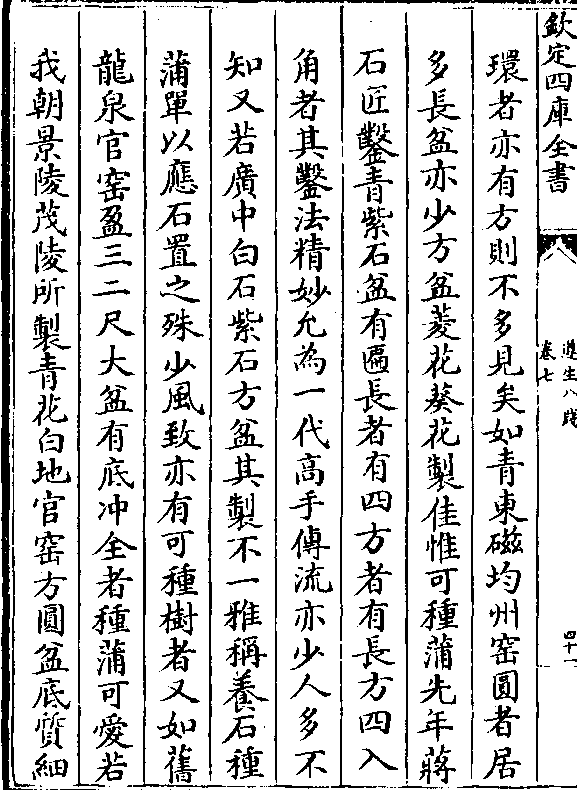 欽定四庫全書
遵生八牋
卷七
四十一
環者亦有方則不多見矣如青東磁均州窑圓者居
多長盆亦少方盆菱花葵花製佳惟可種蒲先年蔣
石匠鑿青紫石盆有匾長者有四方者有長方四入
角者其鑿法精妙允為一代高手傳流亦少人多不
知又若廣中白石紫石方盆其製不一雅稱養石種
蒲單以應石置之殊少風致亦有可種樹者又如舊
龍泉官窑盈三二尺大盆有底冲全者種蒲可愛若
我朝景陵茂陵所製青花白地官窑方圓盆底質細